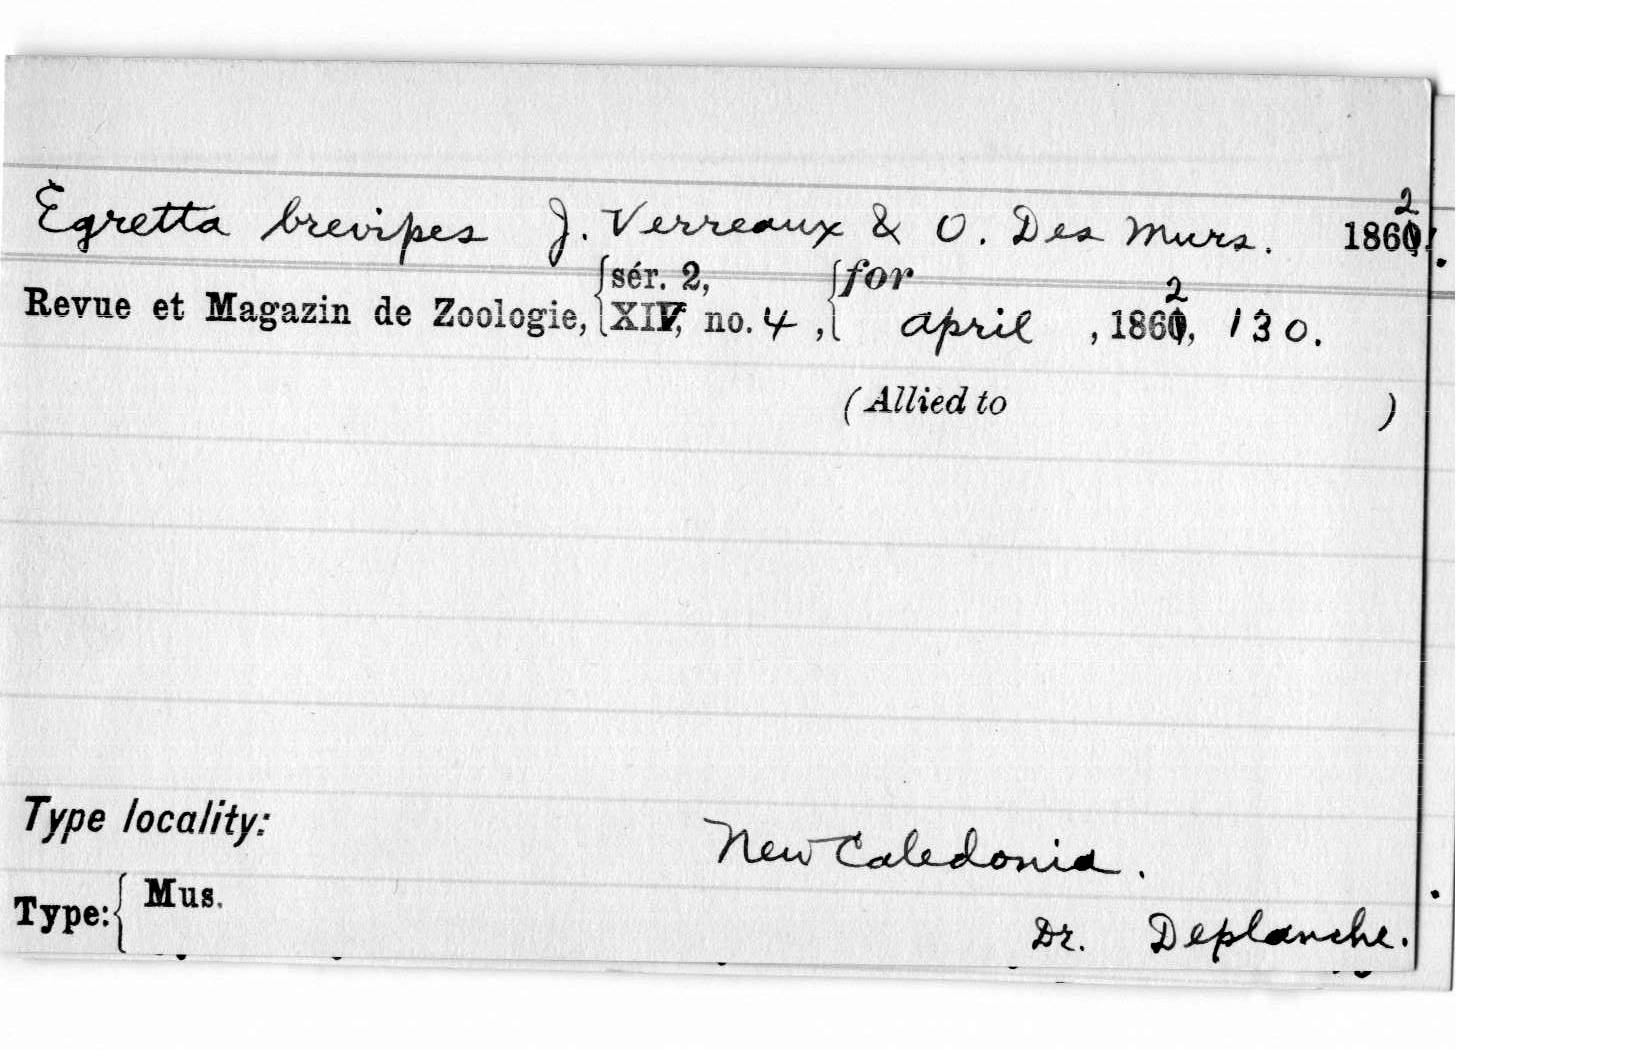 Egretta brevipes J. Verreaux & O. Des Murs. 1862.
Revue et Magazin de Zoologie, { sér. 2, XIV, no. 4 , { for April , 1862, 130.
(Allied to )
Type locality:
New Caledonia.
Type: { Mus.
Dr. Deplanche.